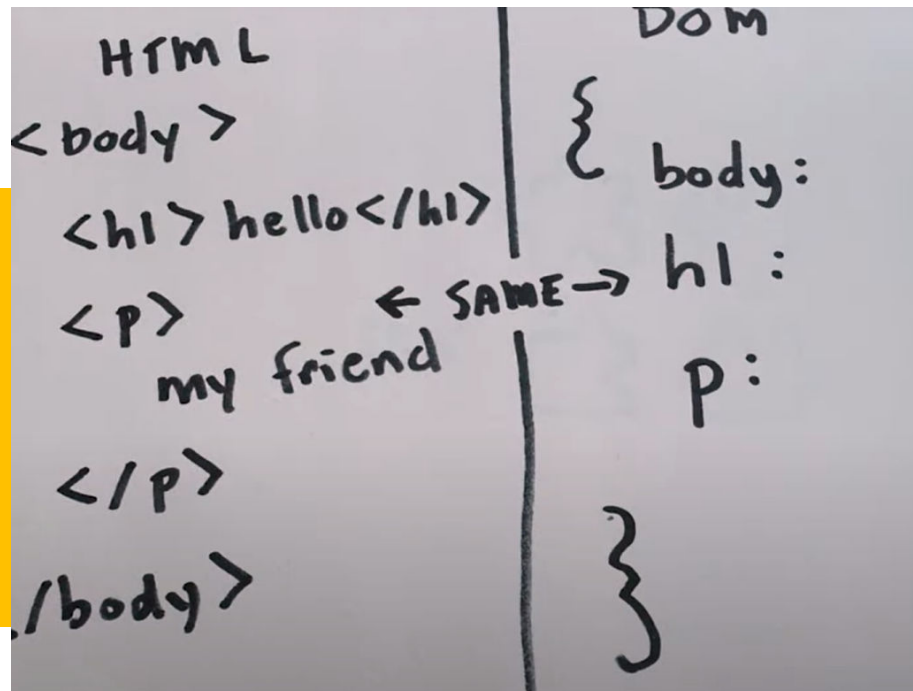 HTML
<body>
<h1>hello</h1>
<p>
my friend
</p>
/body>
← SAME →
DOM
{
body:
h1:
p:
}